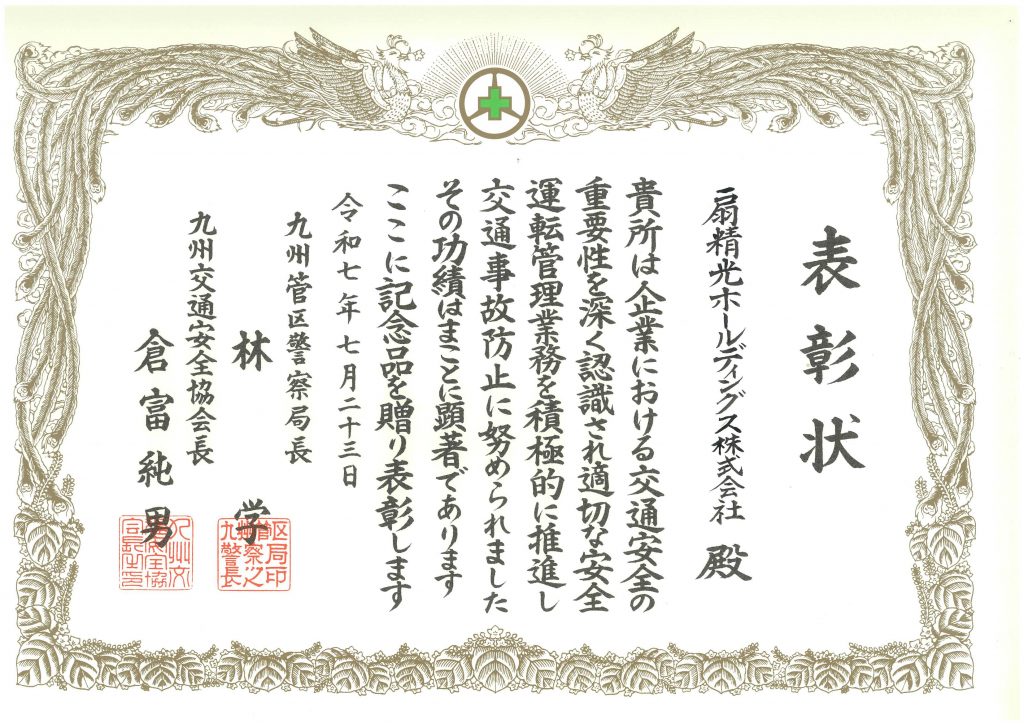 表彰状
扇精光ホールディングス株式会社 殿
貴所は企業における交通安全の
重要性を深く認識され適切な安全
運転管理業務を積極的に推進し
交通事故防止に努められました
その功績はまことに顕著であります
ここに記念品を贈り表彰します
令和七年七月二十三日
九州管区警察局長
林 学
九州交通安全協会長
倉富純男